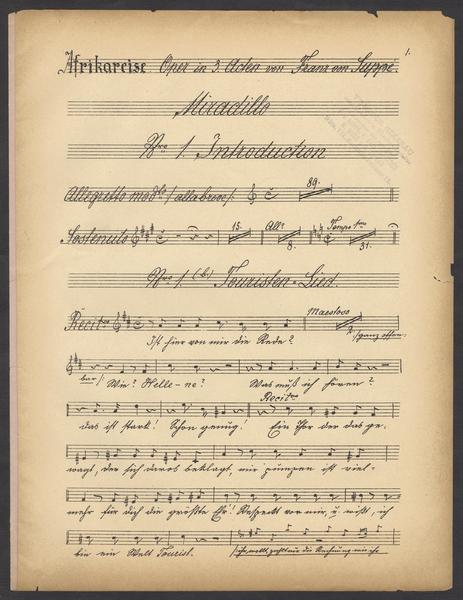 1.
Afrikareise Oper in 3. Acten von Franz von Suppé.
Miradillo
Nro 1. Introduction
89.
Allegretto modto / alla breve /.
15. Allo Tempo
Sostenuto 8. 31.
Nro 1. (b.) Touristen-Lied.
Maestoso
Recitvo 2.
Ist hier von mir die Rede? / ganz offen-
bar / Wie? Helle-ne? Was muß ich hören?
Recit
das ist stark! Schon genug! Ein Thor der das ge-
wagt, der sich darob beklagt, wir ist viel-
mehr für dich die größte Ehr! Respect vor mir, ich
bin ein Welt Tourist.